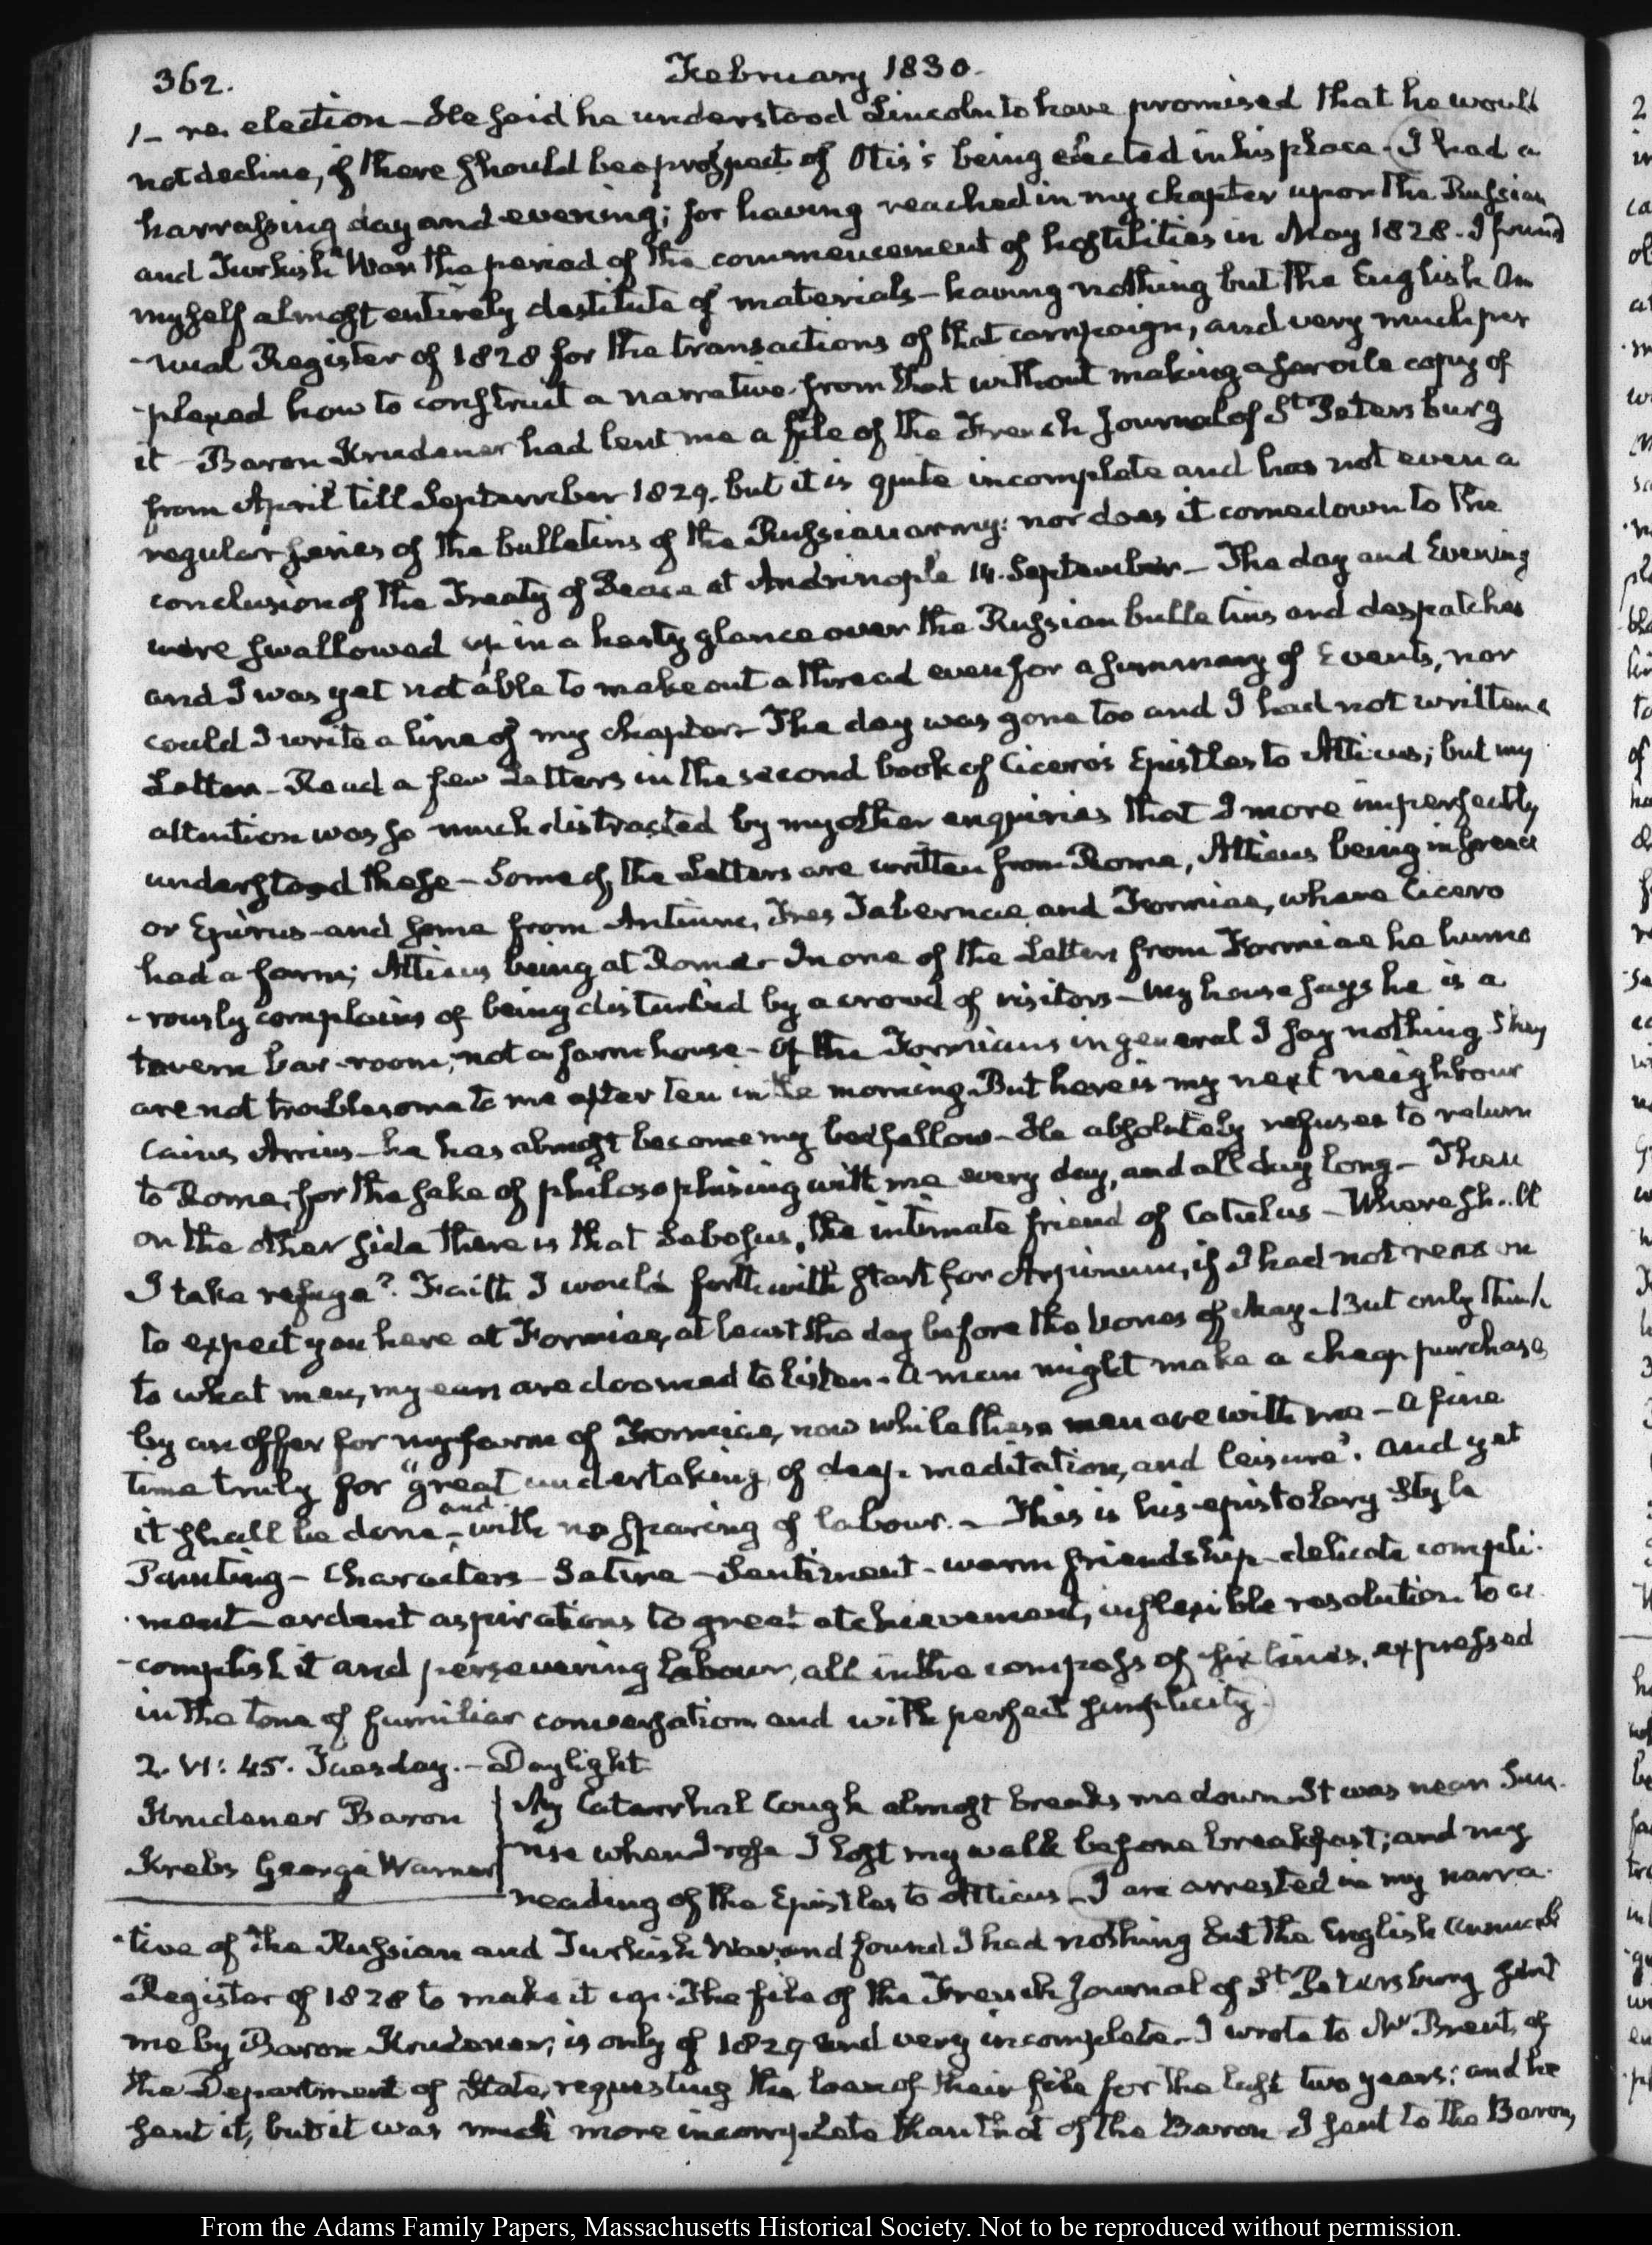 362.
February 1830.
1- re. election - He said he understood Lincoln to have promised that he would
not decline, if there should be a prospect of Otis's being elected in his place. I had a
harrassing day and evening; for having reached in my chapter upon the Russian
and Turkish War the period of the commencement of hostilities in May 1828. I found
myself almost entirely destitute of materials - having nothing but the English An
-nual Register of 1828 for the transactions of that campaign, and very much per
-plexed how to construct a narrative from that without making a servile copy of
it - Baron Krudener had lent me a file of the French Journal of St. Petersburg
from April till September 1829, but it is quite incomplete and has not even a
regular series of the bulletins of the Russian army: nor does it come down to the
conclusion of the Treaty of Peace at Andrinople 14. September - The day and Evening
were swallowed up in a hasty glance over the Russian bulletins and despatches
and I was yet not able to make out a thread even for a summary of Events, nor
could I write a line of my chapter - The day was gone too and I had not written a
Letter - Read a few Letters in the second book of Cicero's Epistles to Atticus; but my
attention was so much distracted by my other enquiries that I more imperfectly
understood these - Some of the Letters are written from Rome, Atticus being in Greece
or Epirus - and some from Antium, Tres Tabernae and Formiae, where Cicero
had a farm; Atticus being at Rome - In one of the Letters from Formiae he humo
-rously complains of being disturbed by a crowd of visitors - My house says he is a
tavern bar-room, not a farm house - Of the Formians in general I say nothing They
are not troublesome to me after ten in the morning. But here is my next neighbour
Caius Arrius - he has almost become my bedfellow - He absolutely refuses to return
to Rome, for the sake of philosophising with me every day, and all day long - Then
on the other side there is that Sebosus, the intimate friend of Catulus - Where shall
I take refuge? Faith I would forthwith start for Arpinum, if I had not reason
to expect you here at Formiae, at least the day before the Nones of May - But only think
to what men, my ears are doomed to listen - A man might make a cheap purchase
by an offer for my farm of Formiae, now while these men are with me - A fine
time truly for "great undertaking, of deep meditation, and leisure". And yet
it shall be done - and with no sparing of labour. - This is his epistolary Style
Painting - Characters - Satire - Sentiment - warm friendship - delicate compli-
-ment - ardent aspirations to great atchievement, inflexible resolution to ac
-complish it and persevering labour, all in the compass of six lines, expressed
in the tone of familiar conversation and with perfect simplicity.
2. VI: 45. Tuesday. - Daylight
Krudener Baron
Krebs George Warner
My Catarrhal Cough almost breaks me down. It was near Sun-
rise when I rose I lost my walk before breakfast; and my
reading of the Epistles to Atticus - I are arrested in my narra-
-tive of the Russian and Turkish War, and found I had nothing but the English Annual
Register of 1828 to make it up. The file of the French Journal of St. Petersburg sent
me by Baron Krudener, is only of 1829 and very incomplete - I wrote to Mr Brent, of
the Department of State, requesting the loan of their file for the last two years; and he
sent it, but it was much more incomplete than that of the Baron I sent to the Baron,
From the Adams Family Papers, Massachusetts Historical Society. Not to be reproduced without permission.